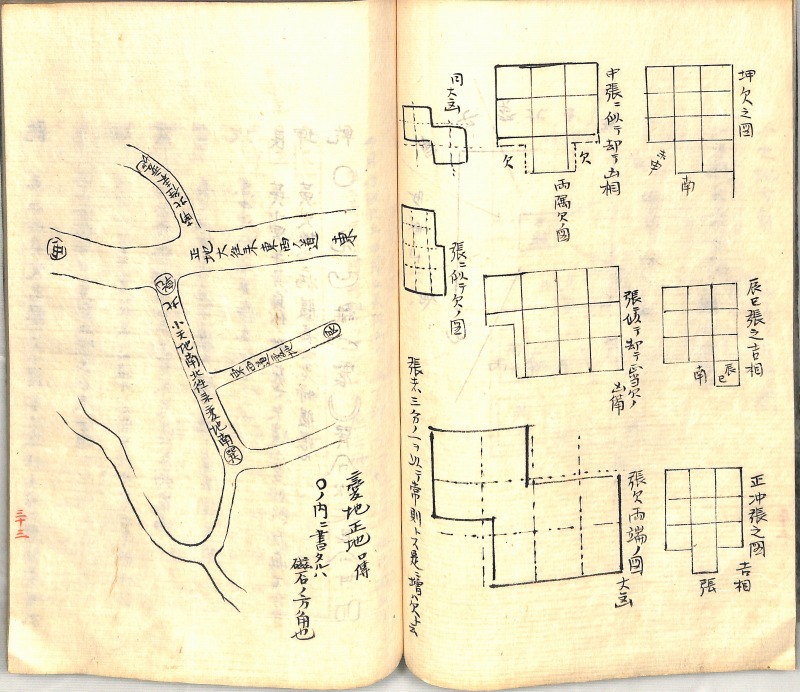 坤欠之図
南
中張ニ似テ却テ凶相
欠
欠
両隅欠ノ図
同大凶
辰巳張之吉相
南
辰巳
張ニ似テ欠ノ図
凶備
正冲張之図
吉相
張
張欠両端ノ図
大凶
張ハ三分ノ一ヲ以テ常則トス是ニ増ハ欠ト云
東
正地大往来東西ノ道
西
乾
北
小天地南北往来変地南
巽
変地正地口傳
〇ノ内ニ書タルハ
磁石ノ方角也
三十三